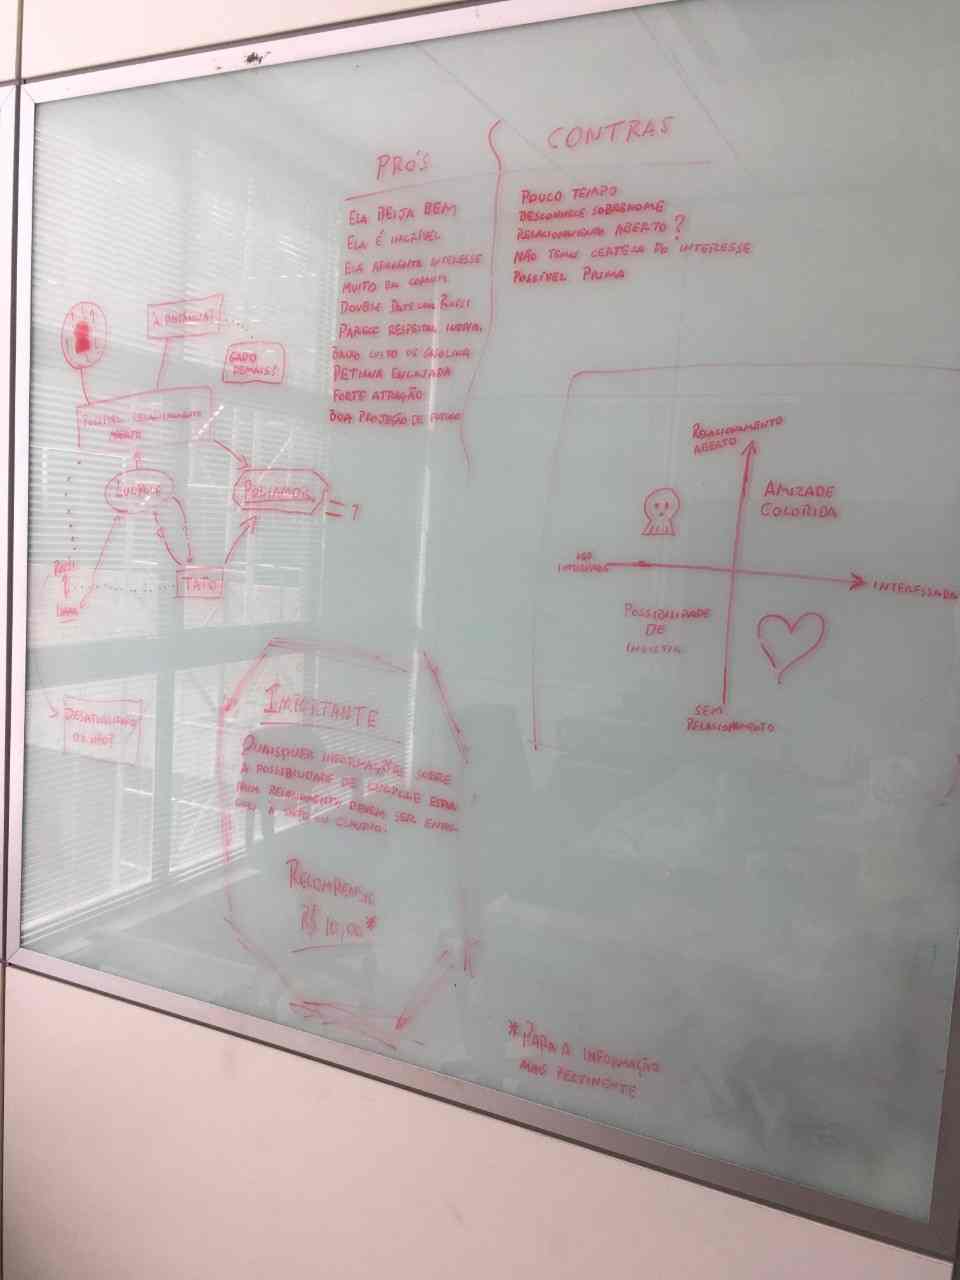 PRÓS
ELA BEIJA BEM
ELA É INCRÍVEL
ELA APARENTA INTERESSE
MUITO EM COMUM
DOUBLE DATE COM
PARECE RESPEITAR
BAIXO CUSTO DE GASOLINA
PETIANA ENGAJADA
FORTE ATRAÇÃO
BOA PROJEÇÃO DE FUTURO
CONTRAS
POUCO TEMPO
DESCONHECE SOBRENOME
RELACIONAMENTO ABERTO?
NÃO TEMOS CERTEZA DO INTERESSE
POSSÍVEL PRIMA
À DISTÂNCIA?
GADO
DEMAIS!
POSSÍVEL RELACIONAMENTO
ABERTO
POLIAMOR
= ?
TATO
DESATUALIZADO
OU NÃO?
RELACIONAMENTO
ABERTO
AMIZADE
COLORIDA
NÃO
INTERESSADA
INTERESSADA
POSSIBILIDADE
DE
SEM
RELACIONAMENTO
IMPORTANTE
QUAISQUER INFORMAÇÕES SOBRE
A POSSIBILIDADE DE
RELACIONAMENTO DEVEM SER
RECOMPENSA
R$ 10,00*
*PARA A INFORMAÇÃO
MAIS PERTINENTE